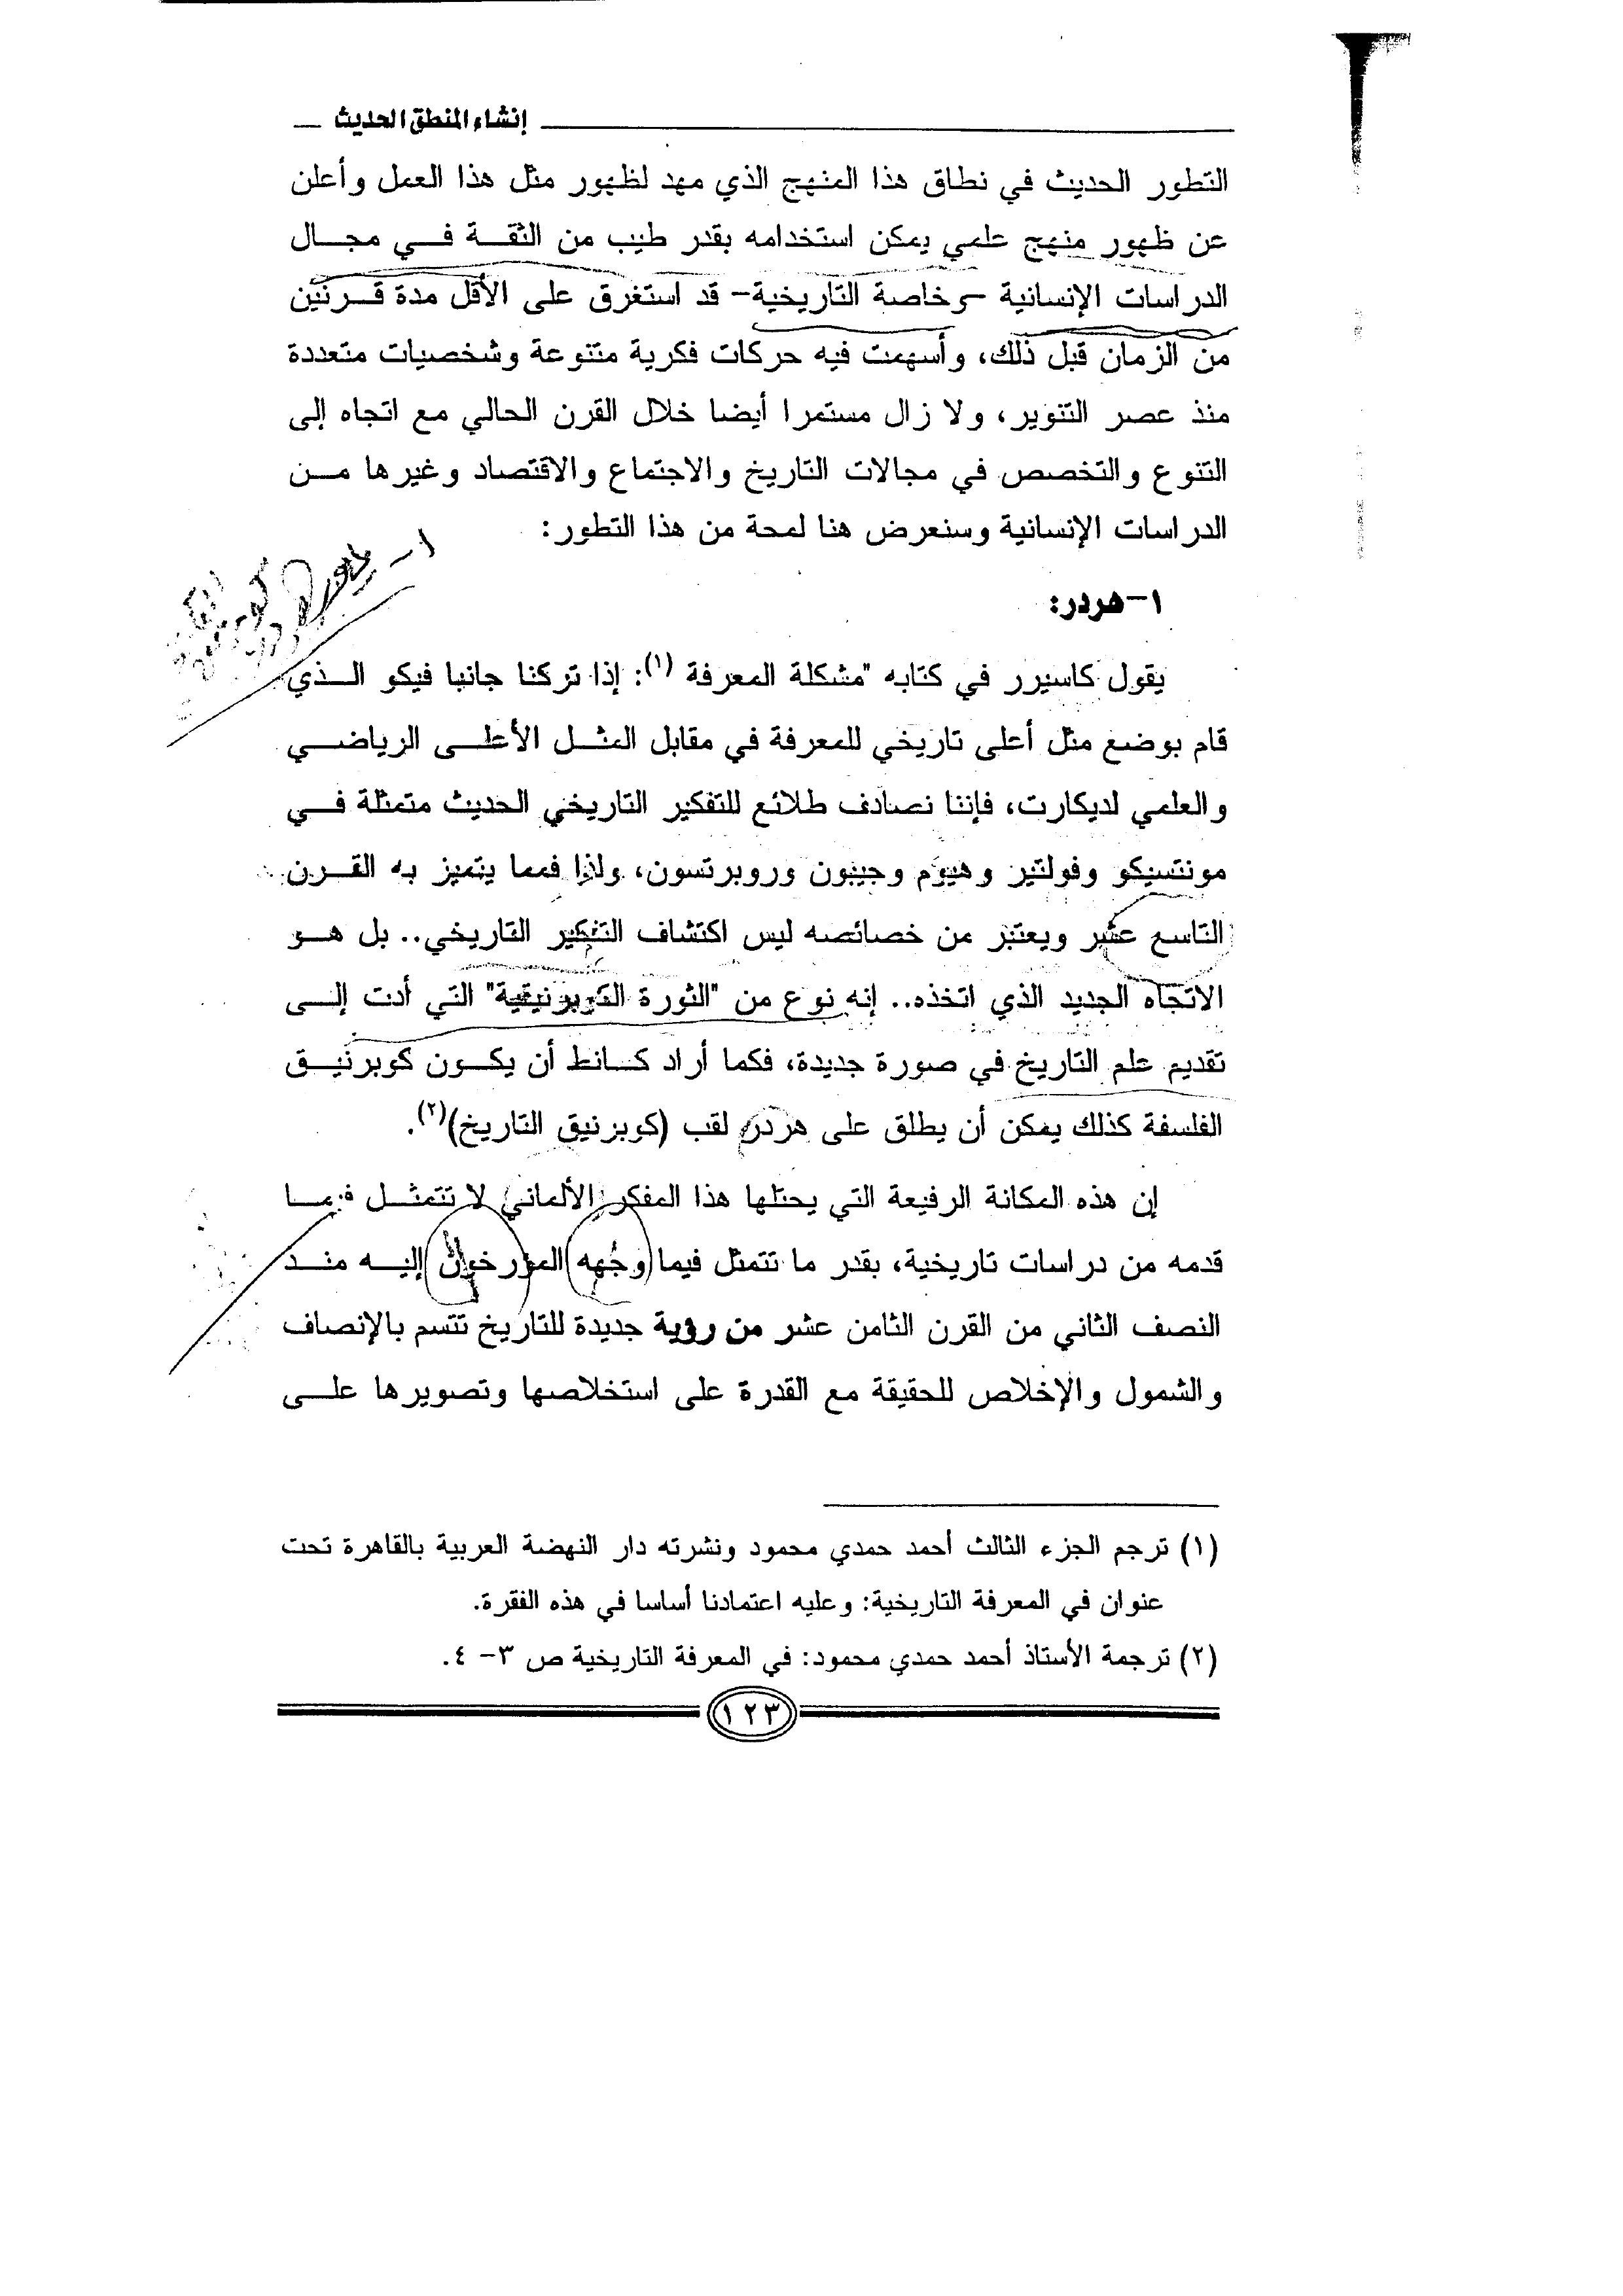 إنشاء المنطق الحديث
التطور الحديث في نطاق هذا المنهج الذي مهد لظهور مثل هذا العمل وأعلن
عن ظهور منهج علمي يمكن استخدامه بقدر طيب من الثقة في مجال
الدراسات الإنسانية -وخاصة التاريخية- قد استغرق على الأقل مدة قرنين
من الزمان قبل ذلك، وأسهمت فيه حركات فكرية متنوعة وشخصيات متعددة
منذ عصر التنوير، ولا زال مستمرا أيضا خلال القرن الحالي مع اتجاه إلى
التنوع والتخصص في مجالات التاريخ والاجتماع والاقتصاد وغيرها من
الدراسات الإنسانية وسنعرض هنا لمحة من هذا التطور:
١-هردر:
يقول كاسيرر في كتابه "مشكلة المعرفة (١): إذا تركنا جانبا فيكو الذي
قام بوضع مثل أعلى تاريخي للمعرفة في مقابل المثل الأعلى الرياضي
والعلمي لديكارت، فإننا نصادف طلائع للتفكير التاريخي الحديث متمثلة في
مونتسيكو وفولتير وهيوم وجيبون وروبرتسون، ولذا فمما يتميز به القرن
التاسع عشر ويعتبر من خصائصه ليس اكتشاف التفكير التاريخي.. بل هو
الاتجاه الجديد الذي اتخذه.. إنه نوع من "الثورة الكوبرنيقية" التي أدت إلى
تقديم علم التاريخ في صورة جديدة، فكما أراد كانط أن يكون كوبرنيق
الفلسفة كذلك يمكن أن يطلق على هردر لقب (كوبرنيق التاريخ)(٢).
إن هذه المكانة الرفيعة التي يحتلها هذا المفكر الألماني لا تتمثل فيما
قدمه من دراسات تاريخية، بقدر ما تتمثل فيما وجهه المؤرخون إليه منذ
النصف الثاني من القرن الثامن عشر من رؤية جديدة للتاريخ تتسم بالإنصاف
والشمول والإخلاص للحقيقة مع القدرة على استخلاصها وتصويرها على
(١) ترجم الجزء الثالث أحمد حمدي محمود ونشرته دار النهضة العربية بالقاهرة تحت
عنوان في المعرفة التاريخية: وعليه اعتمادنا أساسا في هذه الفقرة.
(٢) ترجمة الأستاذ أحمد حمدي محمود: في المعرفة التاريخية ص ٣- ٤.
١٢٣